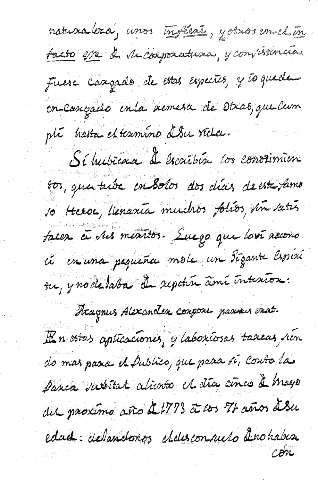 naturaleza, unos implicas, y otros en el in
tacto que de su corporatura, y consistencia
fuese cargado de estas especies, y io quede
encargado en la remesa de otras, que cum
pli hasta el termino de su vida.
Si hubiera de escribir los conosimien
tos, que tube en solos dos dias de este famo
so Heroe, llenaria muchos folios, sin satis
facer á sus meritos. Luego que lo vi recono
ci en una pequeña mole un Gigante Espiri
tu, y no dejaba de repetir á mi interior:
Magnus Alexander corpore parvus erat.
En estas aplicaciones, y laboriosas tareas, sien
do mas para el Publico, que para si, corto la
Parca su vital aliento el dia cinco de Mayo
del proximo año de 1773 á los 71 años de su
edad: dejandonos el desconsuelo de no haber
con